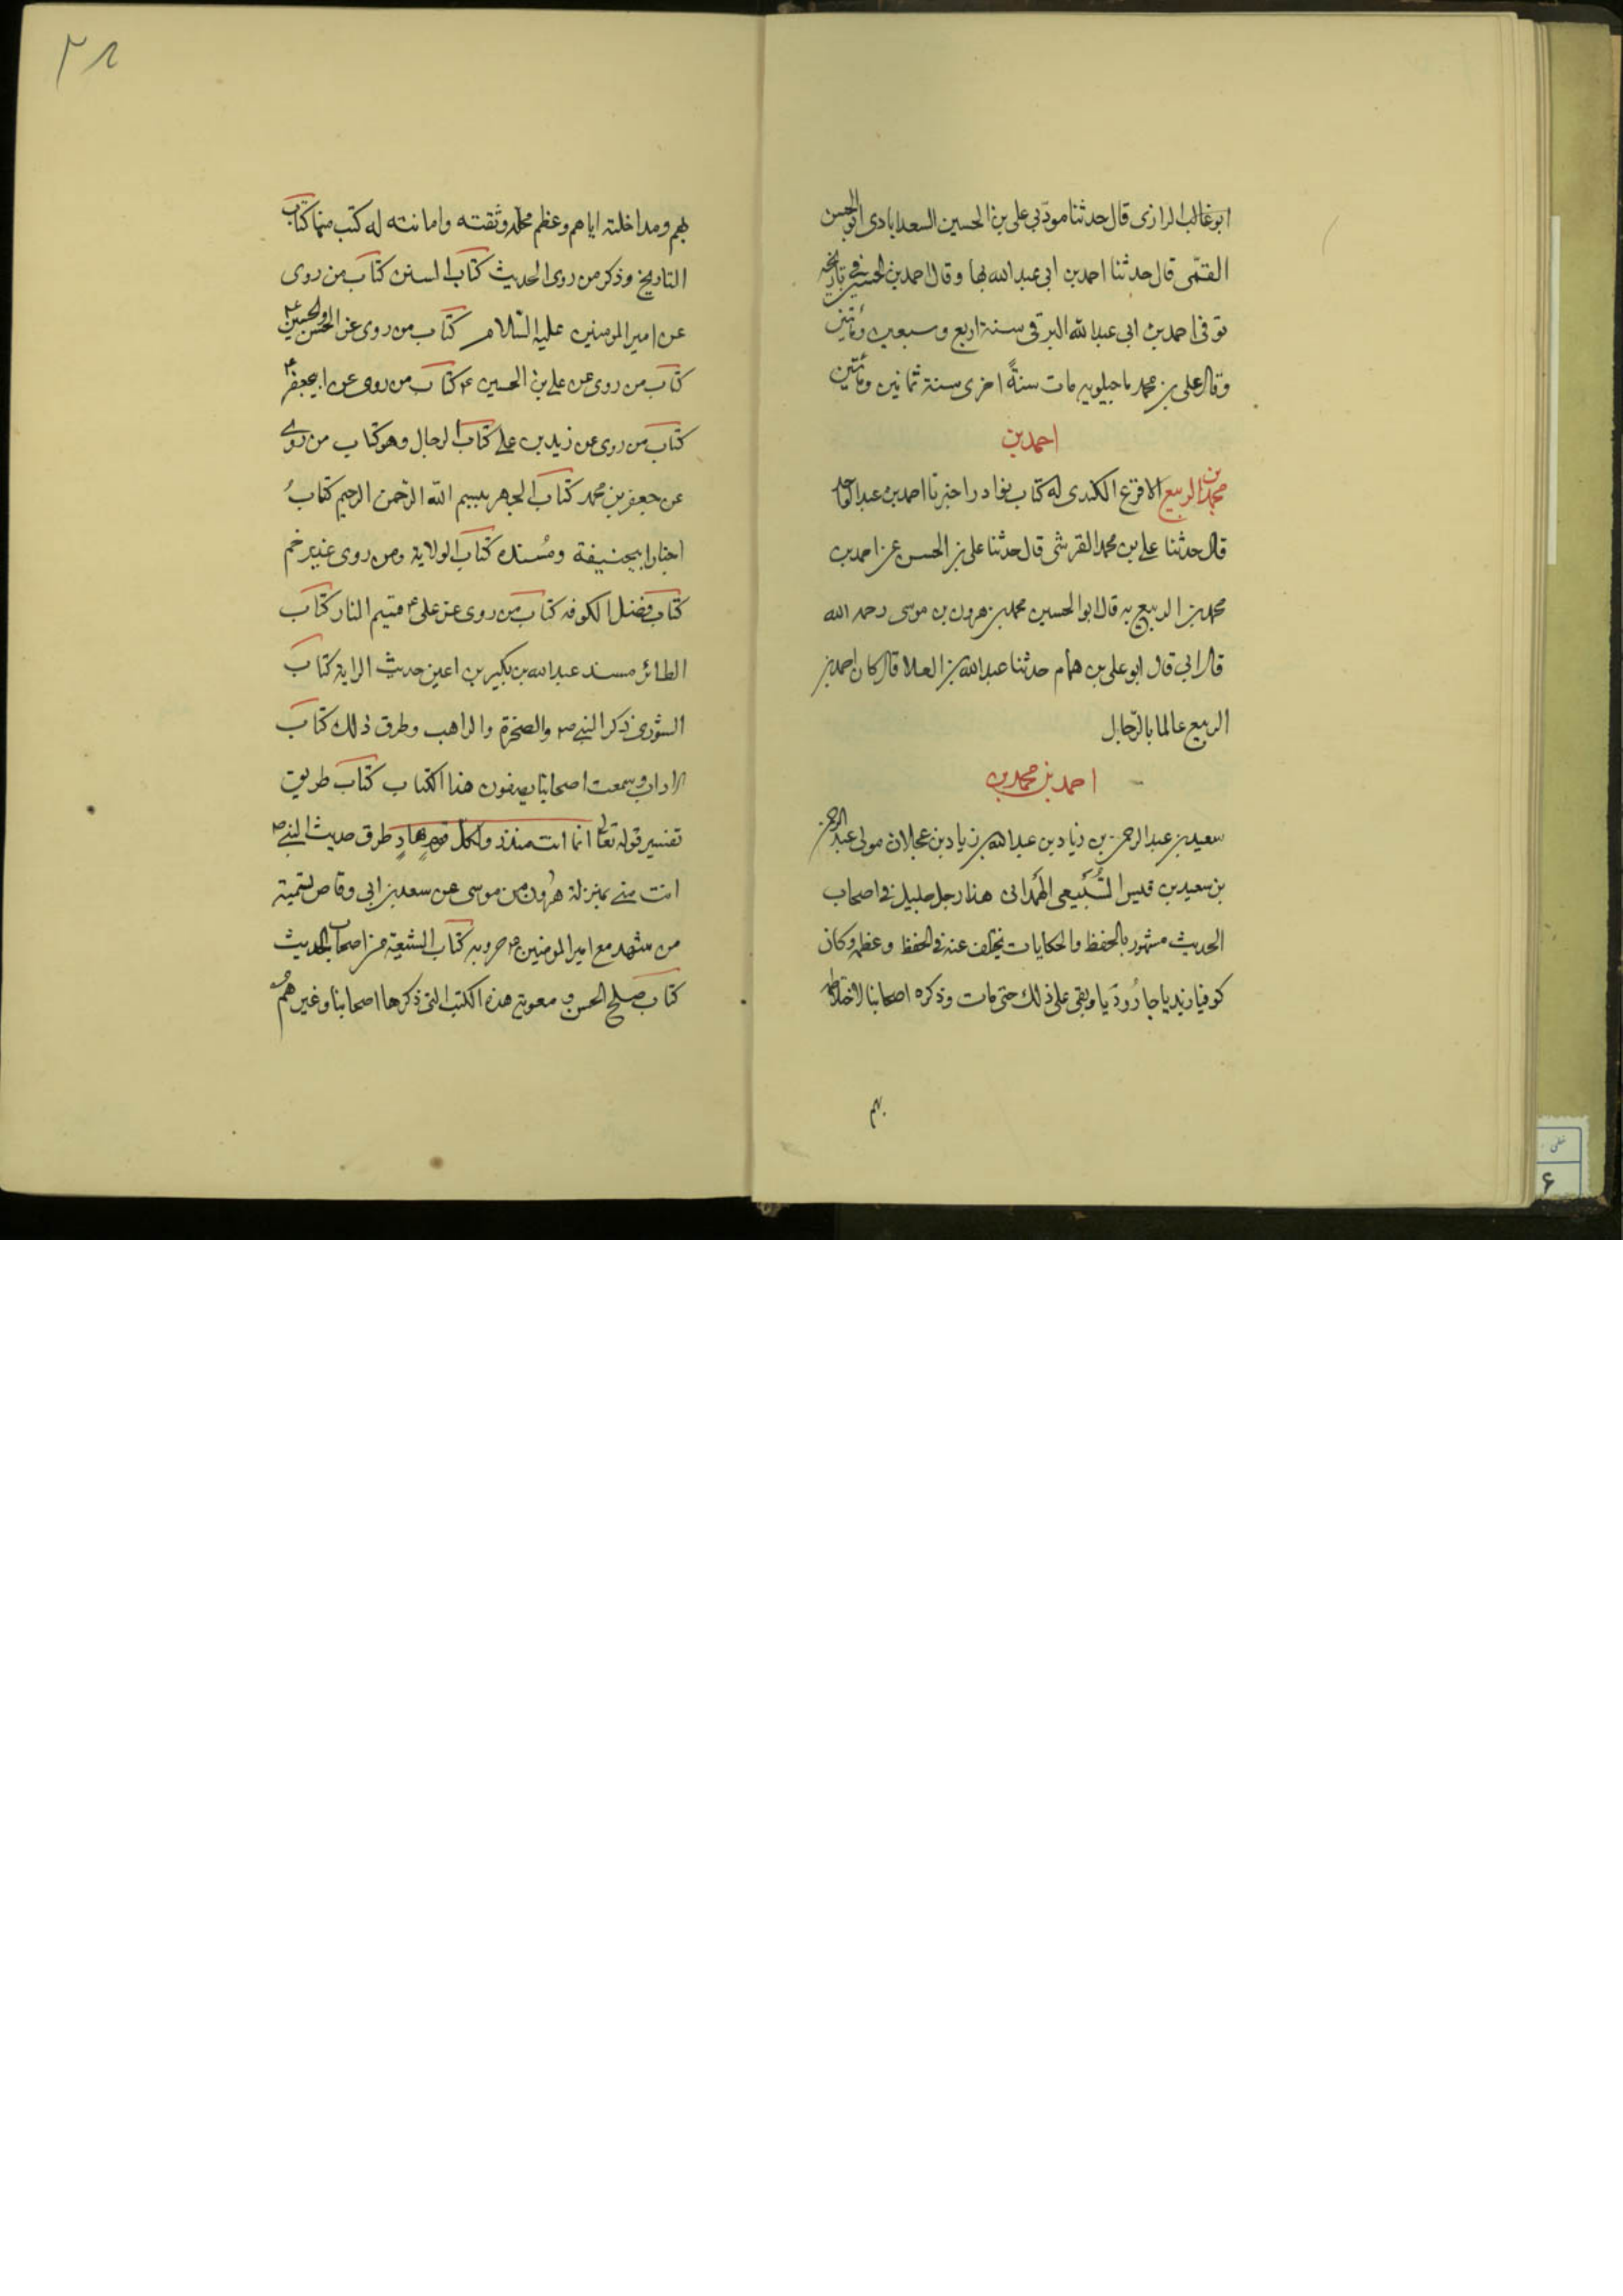 ابو غالب الرازى قال حدثنا مودّبى على بن الحسين السعدابادى ابو الحسن
القمّى قال حدثنا احمد بن ابى عبد الله بها وقال احمد بن الحسين فى تاريخه
توفى احمد بن ابى عبد الله البرقى سنة اربع وسبعين ومأتين
وقال على بن محمد ماجيلويه مات سنةً اخرى سنة ثمانين ومأتين
احمد بن
محمد بن الربيع الاقرع الكندى له كتاب نوادر اخبرنا احمد بن عبد الواحد
قال حدثنا على بن محمد القرشى قال حدثنا على بن الحسن عن احمد بن
محمد بن الربيع به قال ابو الحسين محمد بن هرون بن موسى رحمه الله
قال ابى قال ابو على بن همام حدثنا عبد الله بن العلا قال كان احمد بن
الربيع عالما بالرّجال
احمد بن محمد بن
سعيد بن عبد الرحمن بن زياد بن عبد الله بن زياد بن عجلان مولى عبد الرحمن
بن سعيد بن قيس السَّبيعى الهَمْدانى هذا رجل جليل فى اصحاب
الحديث مشهور بالحفظ والحكايات يختلف عنه فى الحفظ وعظمه وكان
كوفيا زيديا جارُوديّا وبقى على ذلك حتى مات وذكره اصحابنا لاختلاطه
بهم
٢١
بهم ومداخلته اياهم وعظم محله وثقته وامانته له كتب منها كتاب
التاريخ وذكر من روى الحديث كتاب السنن كتاب من روى
عن امير المومنين عليه السّلام كتاب من روى عن الحسن والحسين ع
كتاب من روى عن على بن الحسين ع كتاب من روى عن ابيجعفر ع
كتاب من روى عن زيد بن على كتاب الرجال وهو كتاب من روى
عن جعفر بن محمد كتاب الجهر ببسم الله الرّحمن الرحيم كتابُ
اخبار ابيحنيفة ومُسنده كتاب الولاية ومن روى غدير خم
كتاب فضل الكوفه كتاب من روى عن على ع قسيم النار كتاب
الطائر مسند عبد الله بن بكير بن اعين حديث الراية كتاب
الشورى ذكر النبى ص والصخرة والراهب وطرق ذلك كتاب
الاداب وسمعت اصحابنا يصفون هذا الكتاب كتاب طريق
تفسير قوله تعالى انما انت منذر ولكل قومٍ هادٍ طرق حديث النبى ص
انت منى بمنزلة هرون من موسى عن سعد بن ابى وقاص تسمية
من شهد مع امير المومنين ع حروبه كتاب الشيعة من اصحاب الحديث
كتاب صلح الحسن و معوية هذه الكتب التى ذكرها اصحابنا وغيرهمُ